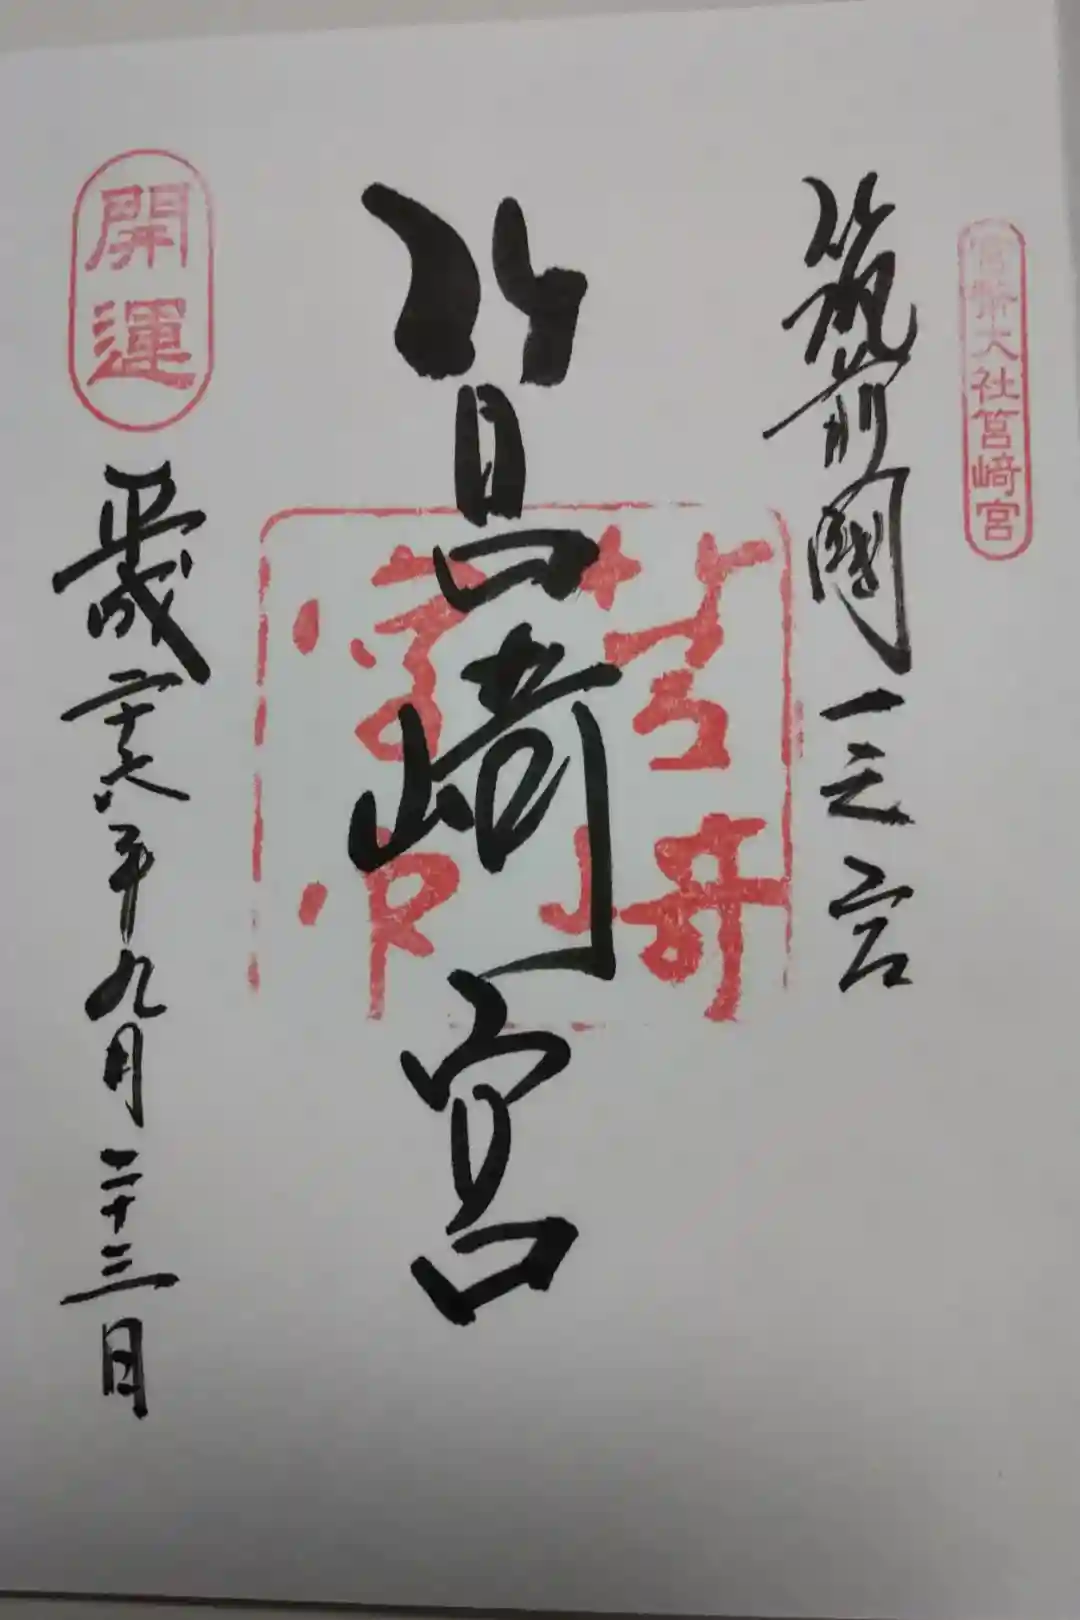 官幣大社筥崎宮
筑前國一之宮
筥崎宮
開運
平成二十六年九月二十三日